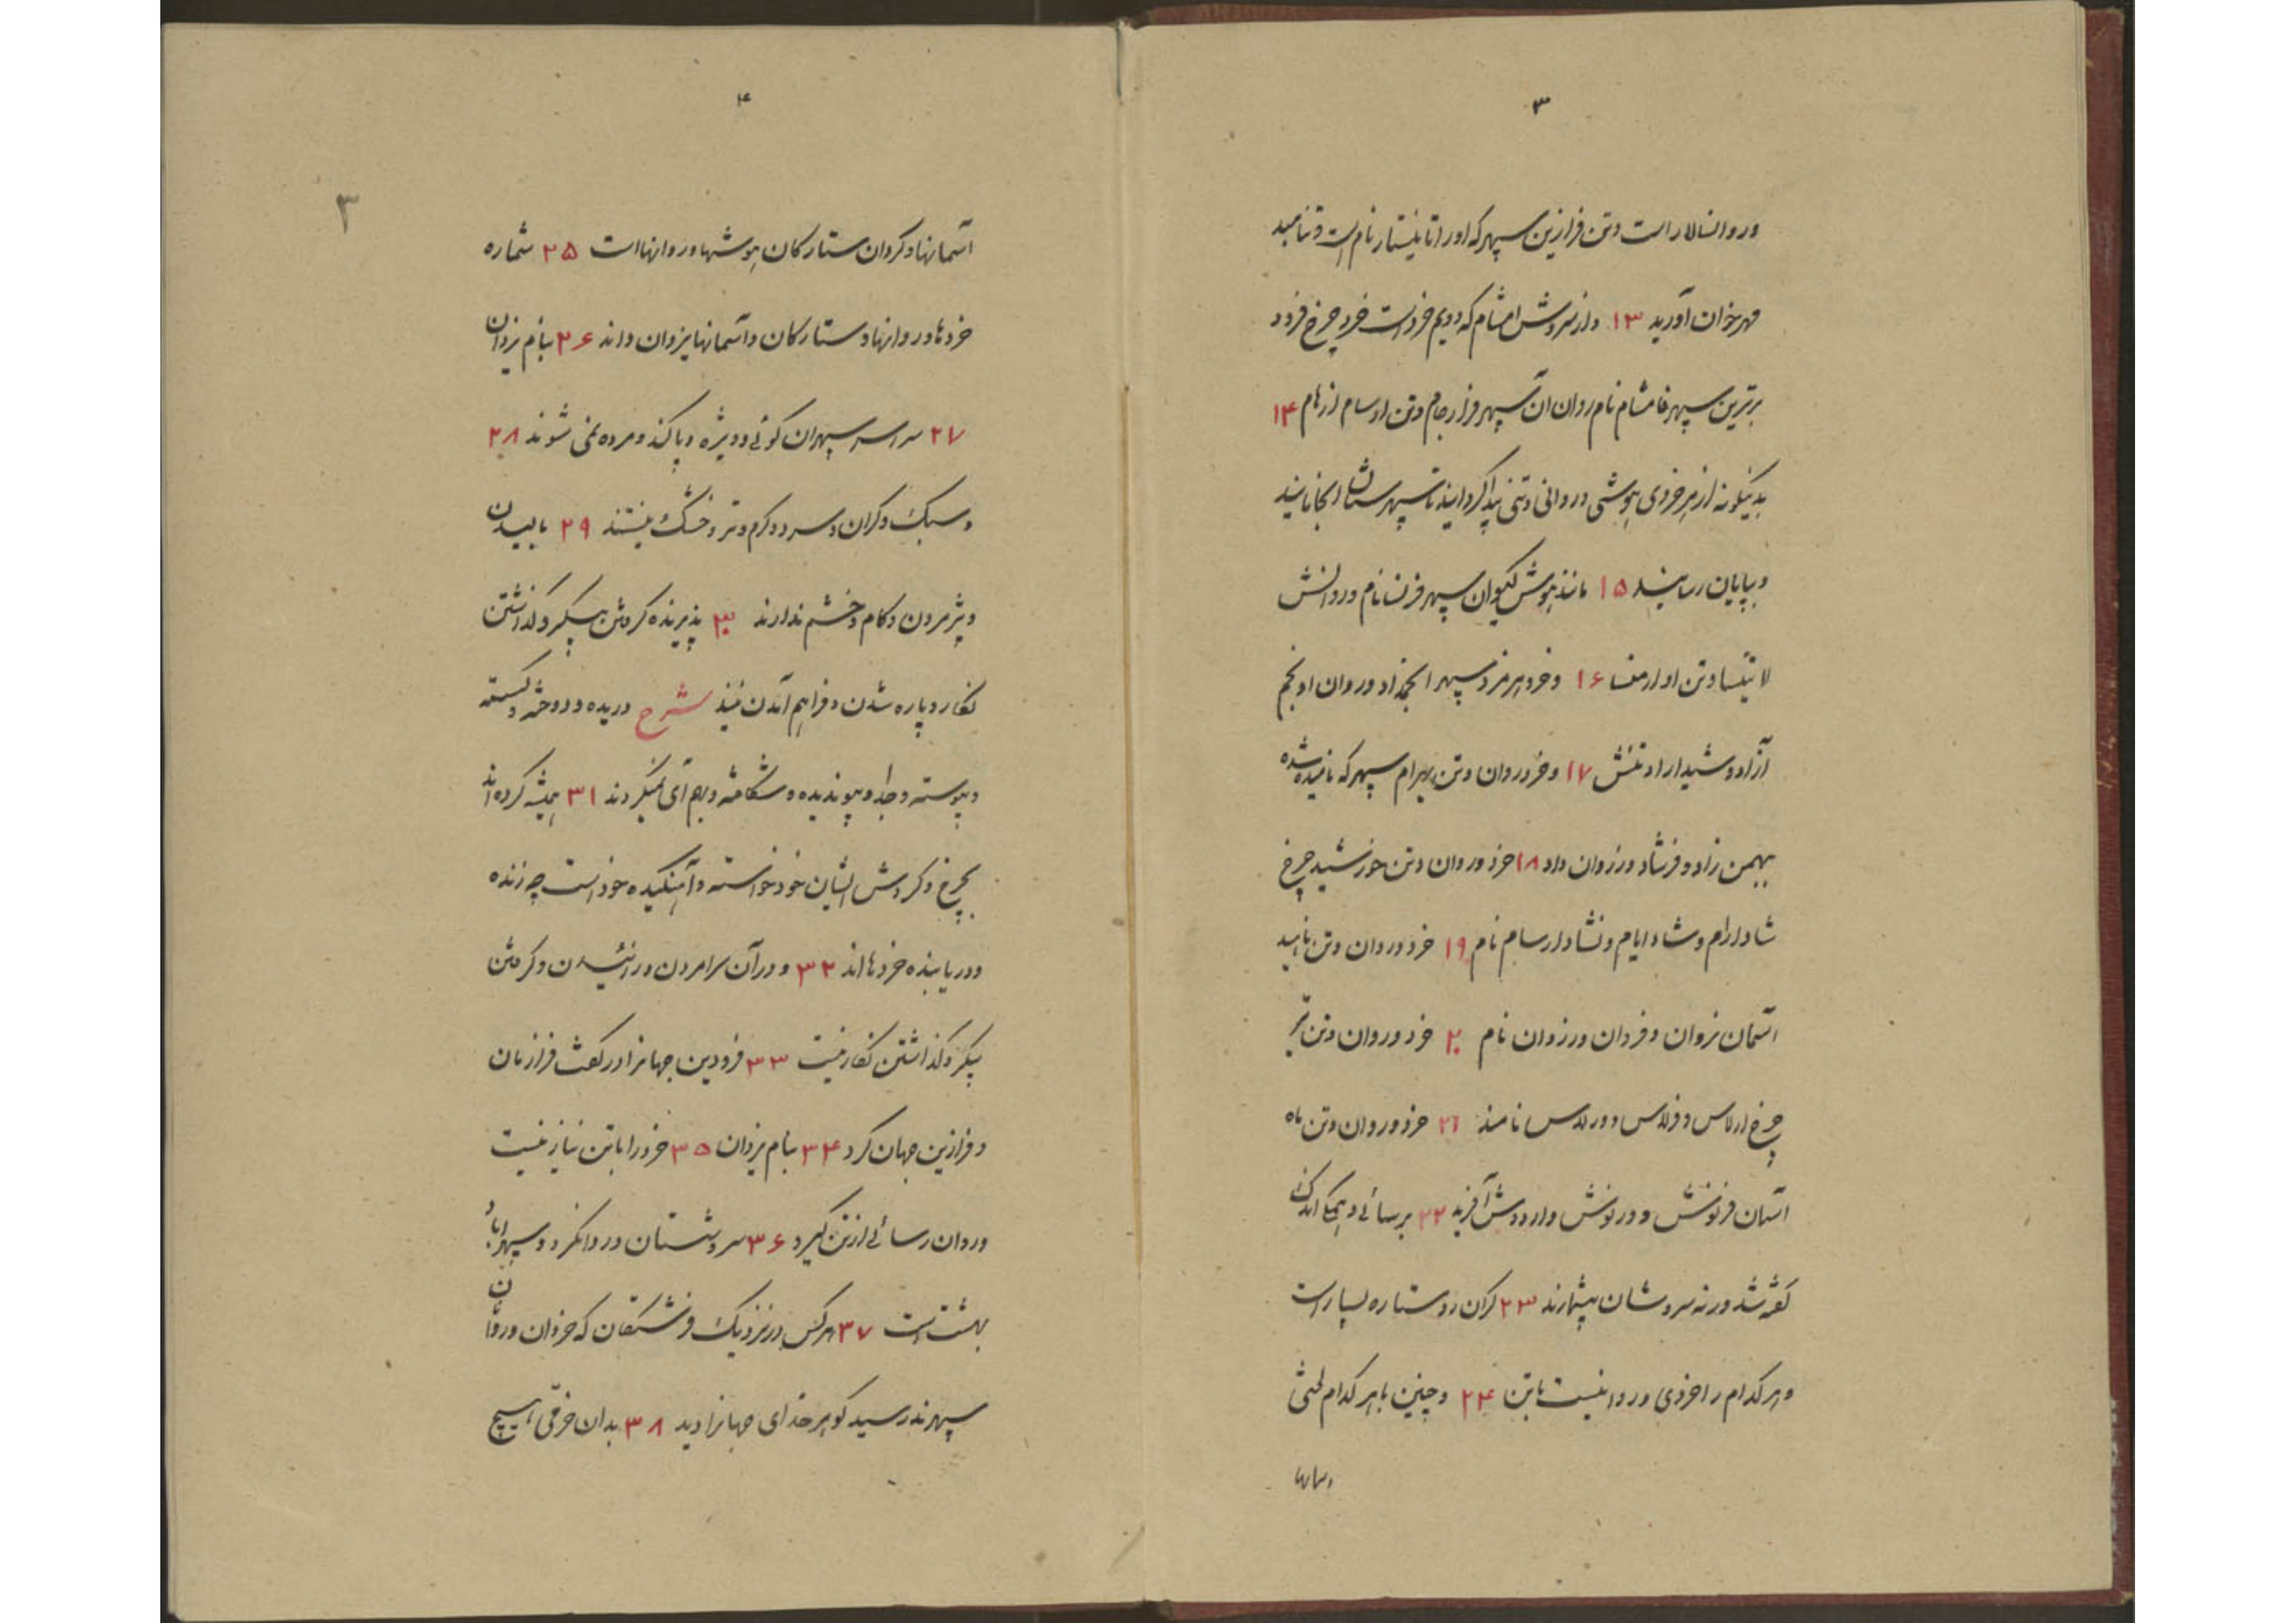 ۳
و روانسالار است و تن فرازین سپهر که او را تانیستار نام است و تنامید
مهرخوان آورید ۱۳ و از سروش امشام که دویم خرد است خرد چرخ فرود
برترین سپهر فامشام نام روان آن سپهر فرارجام و تن او سام ازهام ۱۴
بدینگونه از هر خردی هوشی و روانی و تنی پدا کردانید تا سپهرستان انجامانید
و بپایان رسانید ۱۵ مانند هوش کیوان سپهر فرنسا نام و روانش
لاتینسا و تن او ارمنسا ۱۶ و خرد هرمزد سپهر انجمداد و روان او نجم
آزاد و شیداراد تنش ۱۷ و خرد و روان و تن بهرام سپهر که نامیده شده
بهمن زاد و فرشاد و رزوان داد ۱۸ خرد و روان و تن خورشید چرخ
شادارام و شادایام و نشادارسام نام ۱۹ خرد و روان و تن ناهید
آسمان نروان و فردان و رزوان نام ۲۰ خرد و روان و تن تیر
چرخ ارلاس و فرلاس و ورلاس نامند ۲۱ خرد و روان و تن ماه
آسمان فرنوش و ورنوش و اردوش آفرید ۲۲ برسائی و همکی اندکی
گفته شد ورنه سروشان بیشمارند ۲۳ گران رو ستاره بسیار است
و هر کدام را خردی و روانیست با تن ۲۴ و چنین با هر کدام لختی
۴
۳
آسمانها و گردان ستارگان هوشها و روانها است ۲۵ شماره
خردها و روانها و ستارگان و آسمانها یزدان داند ۲۶ بنام یزدان
۲۷ سراسر سپهران گوئی و ویژه و پاکند و مرده نمی شوند ۲۸
و سبک و گران و سرد و گرم و تر و خشک نیستند ۲۹ بالیدن
و پژمردن و کام و خشم ندارند ۳۰ پذیرنده گرفتن پیکر و گذاشتن
نگار و پاره شدن و فراهم آمدن نیند شرح دریده و دوخته و گسسته
و پیوسته و جدا و پیوندیده و شکافته و بهم آی نمیگردند ۳۱ همیشه گرده اند
بچرخ و گردش ایشان خود خواسته و آهنگیده خود است چه زنده
و دریابنده خردها اند ۳۲ و در آن سرا مردن و زائیدن و گرفتن
پیکر و گذاشتن نگار نیست ۳۳ فرودین جهانرا در کف فرازمان
و فرازین جهان کرد ۳۴ بنام یزدان ۳۵ خرد را با تن نیاز نیست
و روان رسائی از تن گیرد ۳۶ سروشستان و روانکرد و سپهرآباد
بهشت است ۳۷ هر کس در نزدیک فرشتگان که خردان و روانان
سپهرند رسید گوهر خدای جهانرا دید ۳۸ بدان خرمی هیچ